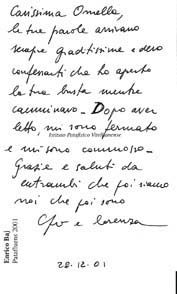 Carissima Ornella,
le tue parole arrivano
sempre graditissime e devo
confessarti che ho aperto
la tua busta mentre
camminavo. Dopo aver
letto, mi sono fermato
Istituto Patafisico Vitellianense
e mi sono commosso.
Grazie e saluti da
entrambi che poi siamo
noi che poi sono
e lorenza
28.12.01
Enrico Baj
Patafluens 2001